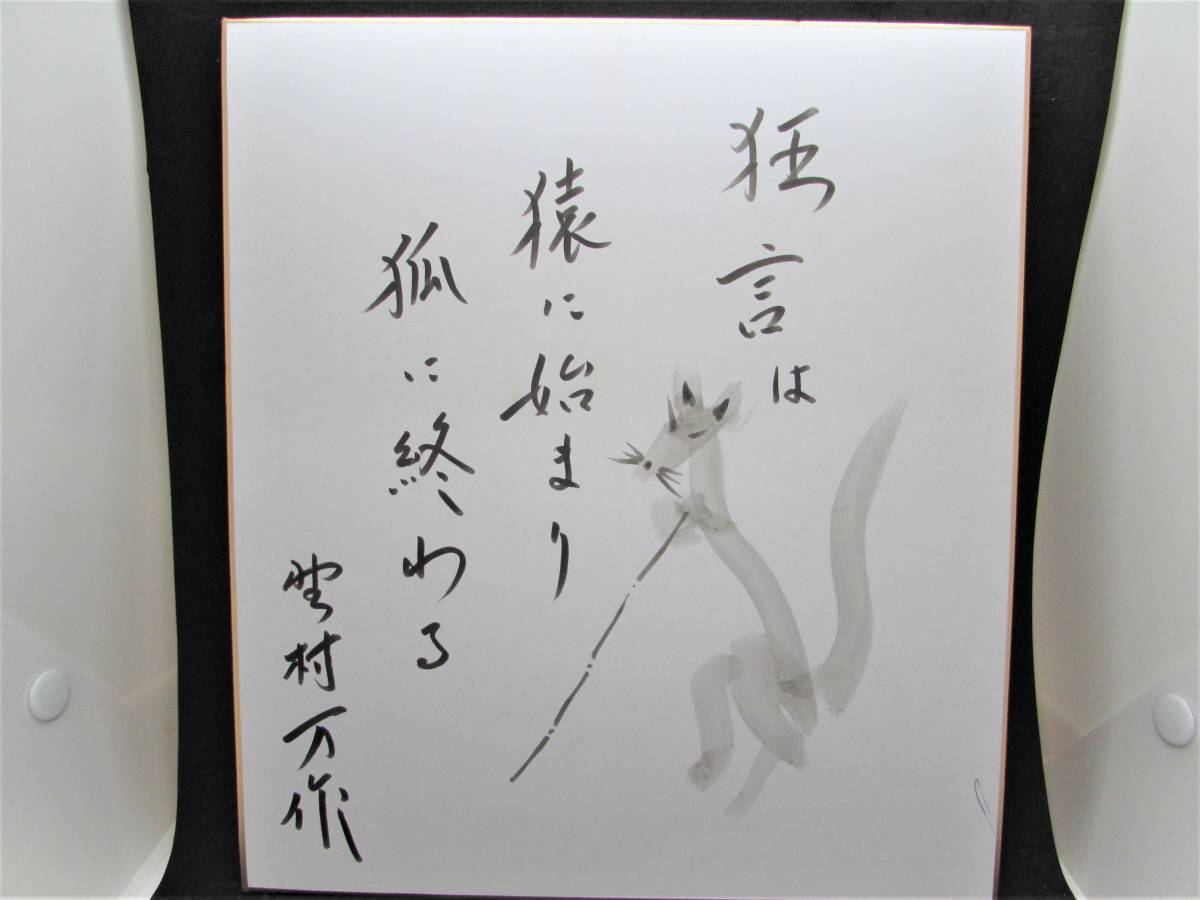 狂言は
猿に始まり
狐に終わる
野村万作